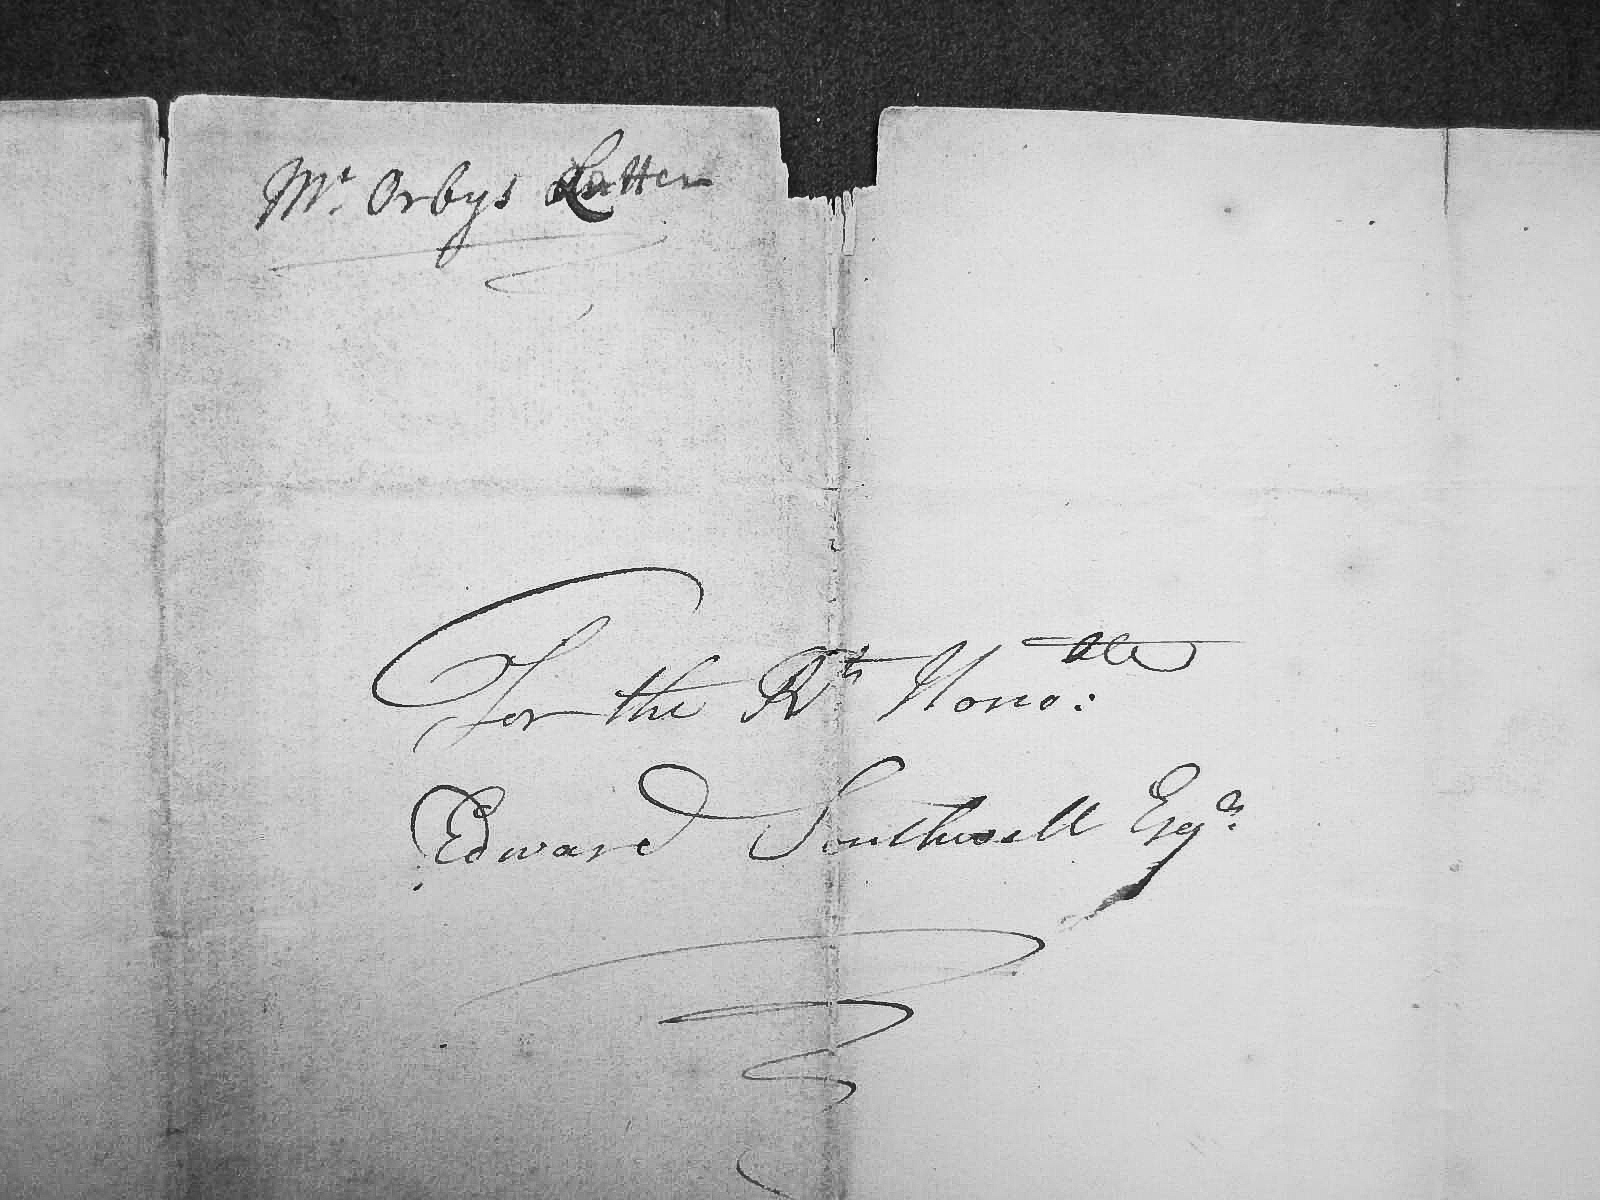 Mr. Orbys Letter
For the Rt Hono:ble
Edward Southwell Esqr.